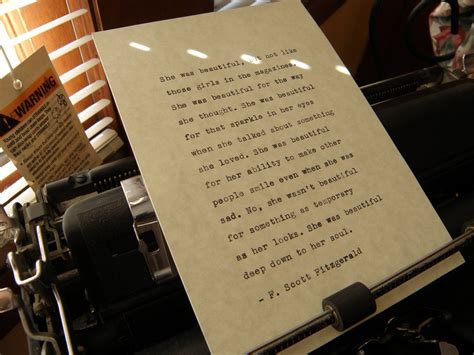 WARNING
She was beautiful, but not like
those girls in the magazines.
She was beautiful for the way
she thought. She was beautiful
for that sparkle in her eyes
when she talked about something
she loved. She was beautiful
for her ability to make other
people smile even when she was
sad. No, she wasn't beautiful
for something as temporary
as her looks. She was beautiful
deep down to her soul.
- F. Scott Fitzgerald